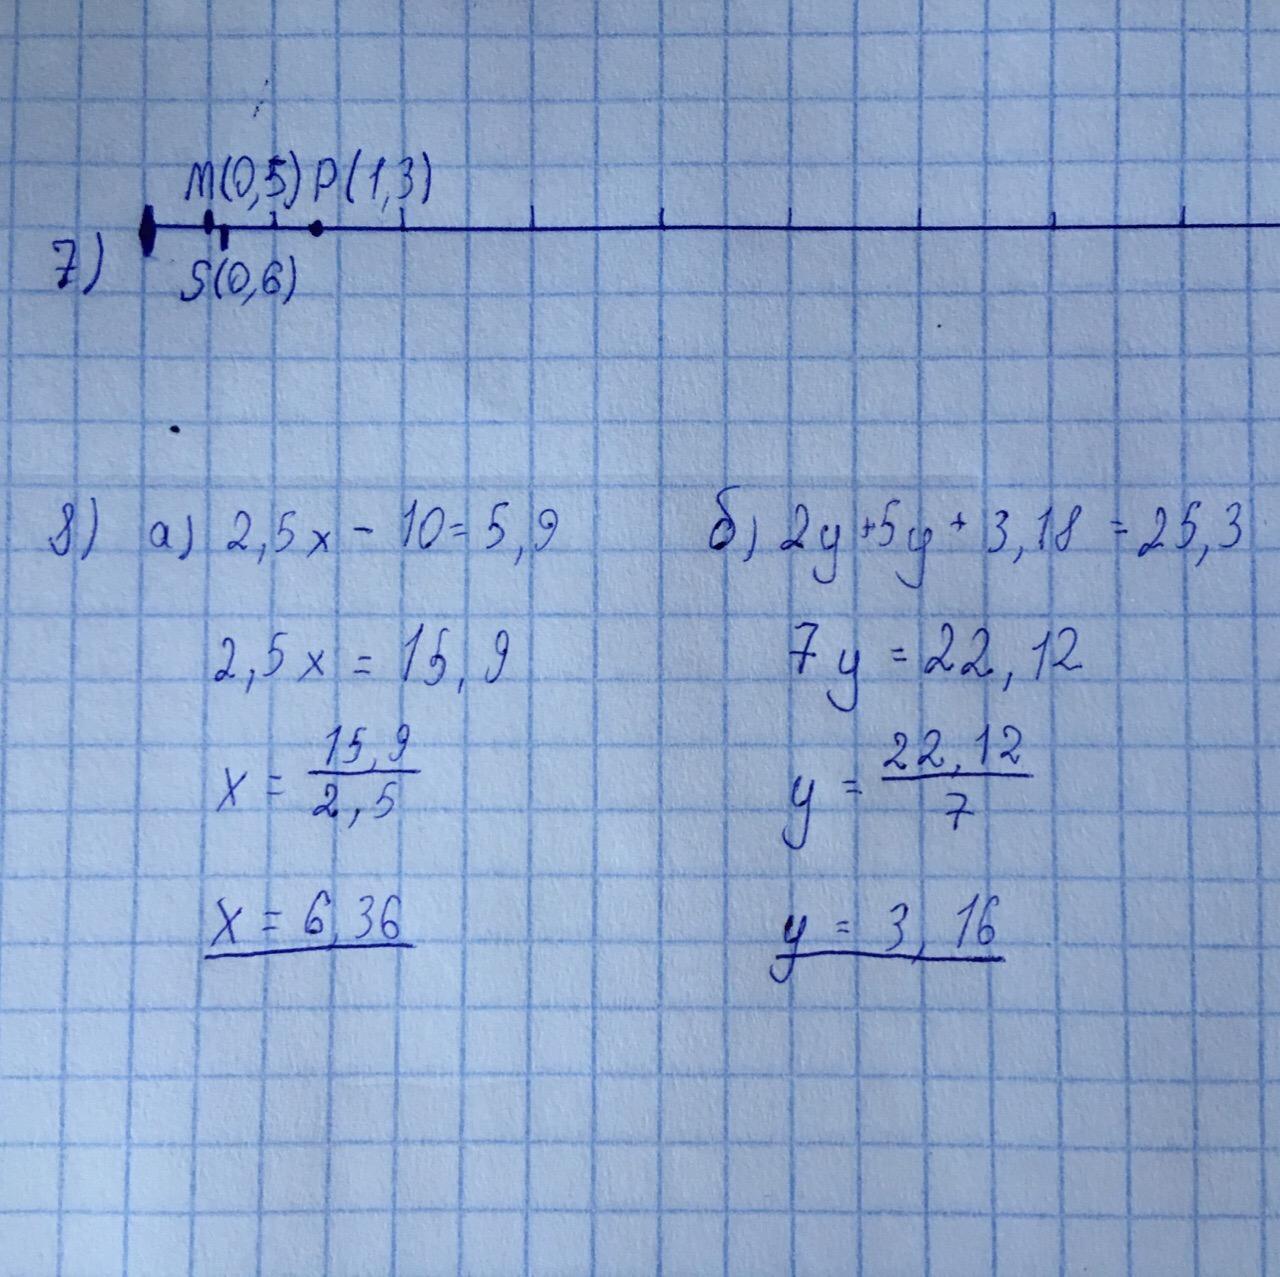 M(0,5) P(1,3)
7)
S(0,6)
8) а) 2,5x - 10 = 5,9
б) 2y + 5y + 3,18 = 25,3
2,5x = 15,9
7y = 22,12
x = 15,9 / 2,5
y = 22,12 / 7
x = 6,36
y = 3,16